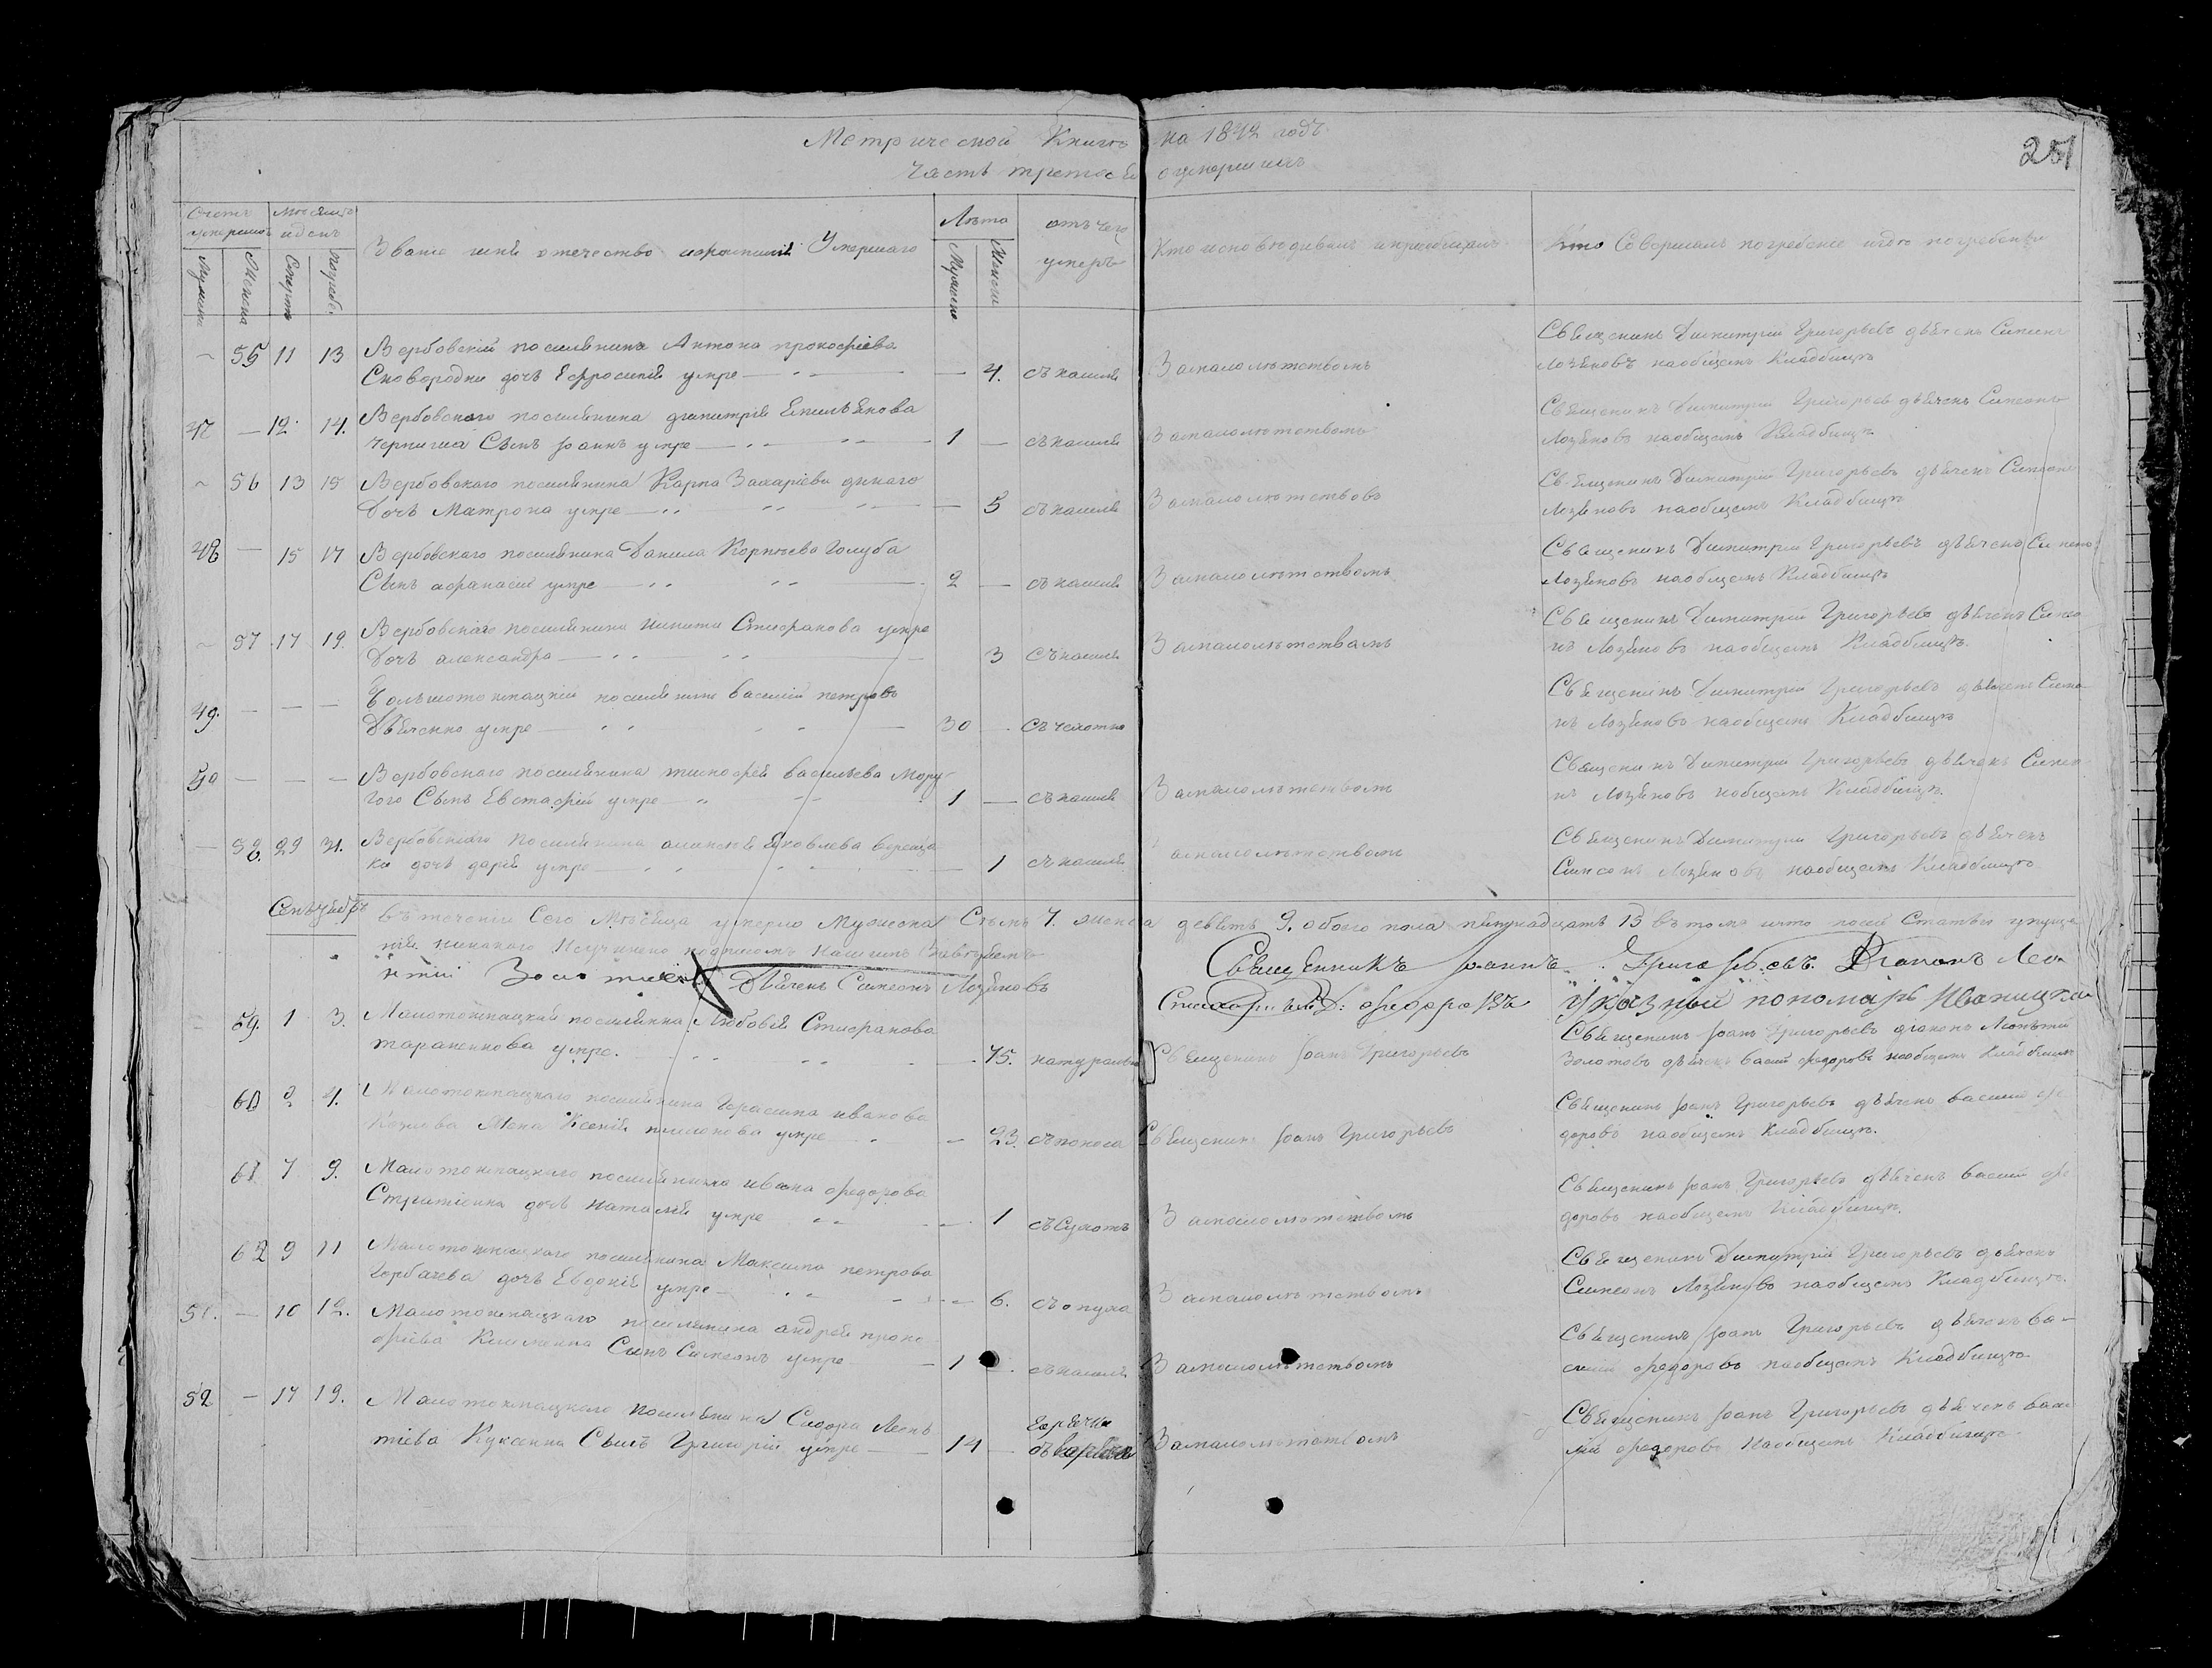 Метрической Книги на 1842 годъ
251
Часть третья о умершихъ
Счетъ умершихъ
Мѣсяцъ и день
Званіе имя отечество и фамилія Умершаго
Лѣта
отъ чего умеръ
Кто исповѣдивалъ и приобщалъ
Кто Совершалъ погребеніе и гдѣ погребены
Мужеска
Женска
Смерти
Погреб.
Мужеска
Женска
55 11 13 Вербовскій поселянина Антона прокофіева
Сковородки дочь Ефросинія умре — 4. съ кашля За малолѣтствомъ
Священникъ Димитрій Григорьевъ дьячекъ Симеонъ
Лозяновъ на общемъ Кладбищѣ
47 — 12. 14. Вербовскаго поселянина димитрія Емильянова
Сынъ Іоаннъ умре — 1 — съ кашля За малолѣтствомъ
Священникъ Димитрій Григорьевъ дьячекъ Симеонъ
Лозяновъ на общемъ Кладбищѣ
56 13 15 Вербовскаго поселянина Карпа Захаріева
Дочь Матрона умре — 5 съ кашля За малолѣтствовъ
Священникъ Димитрій Григорьевъ дьячекъ Симеонъ
Лозяновъ на общемъ Кладбищѣ
48 — 15 17 Вербовскаго поселянина Данила Корнѣева Голуба
Сынъ афанасій умре — 2 — съ кашля За малолѣтствомъ
Священникъ Димитрій Григорьевъ дьячекъ Симео
Лозяновъ на общемъ Кладбищѣ
57 17 19. Вербовскаго поселянина Никиты Стефанова умре
Дочь александра — 3 съ кашля За малолѣтствамъ
Священникъ Димитрій Григорьевъ дьячекъ Симео
нъ Лозяновъ на общемъ Кладбищѣ.
49. — — — поселянинъ василій петровъ
Дьяченко умре — 30 — съ чахотки
Священникъ Димитрій Григорьевъ дьячекъ Симео
нъ Лозяновъ на общемъ Кладбищѣ
50 — — — Вербовскаго поселянина тимофея васильева Мору
гого Сынъ Евстафій умре — 1 — съ кашля За малолѣтствомъ
Священникъ Димитрій Григорьевъ дьячекъ Симео
нъ Лозяновъ на общемъ Кладбищѣ.
— 58. 29 31. Вербовскаго поселянина алексѣя Яковлева вереща
ки дочь дарія умре — 1 съ кашля За малолѣтствомъ
Священникъ Димитрій Григорьевъ дьячекъ
Симеонъ Лозяновъ на общемъ Кладбищѣ
Сентябрь
Въ теченіи Сего Мѣсяца умерло Мужеска Семь 7. женска девять 9. обоего пола въ томъ что
никакого
Священникъ Іоаннъ Григорьевъ. Діаконъ Леон
тій Золотовъ Дьячекъ Симеонъ Лозяновъ
Д: федоровъ Указный пономарь Иваницкій
59. 1 3. Малотокмацкая поселянка Любовія Стефанова
тараненкова умре. 75. натуральн Священникъ Іоанъ Григорьевъ
Священникъ Іоанъ Григорьевъ діаконъ Леонтій
Золотовъ дьячекъ васий федоровъ на общемъ Кладбищѣ
60 2 4. Малотокмацкаго поселянина Герасима иванова
Козлова Жена Ксенія умре — 23. съ поноса Священникъ Іоанъ Григорьевъ
Священникъ Іоанъ Григорьевъ дьячекъ васий фе
доровъ на общемъ Кладбищѣ.
61 7 9. Малотокмацкаго поселянина ивана федорова
дочь наталія умре — 1 съ Сухотъ За малолѣтствомъ
Священникъ Іоанъ Григорьевъ дьячекъ васий фе
доровъ на общемъ Кладбищѣ.
62 9 11 Малотокмацкаго поселянина Максима петрова
горбачева дочь Евдокія умре — 6. съ опуха За малолѣтствомъ
Священникъ Димитрій Григорьевъ дьячекъ
Симеонъ Лозяновъ на общемъ Кладбищѣ.
51. — 10 12. Малотокмацкаго поселянина андрея проко
фіева Сынъ Симеонъ умре — 1 съ кашля За малолѣтствомъ
Священникъ Іоанъ Григорьевъ дьячекъ ва-
силій федоровъ на общемъ Кладбищѣ
52 — 17 19. Малотокмацкаго поселянина Сидора Леон
тіева Куксина Сынъ Григорій умре — 14 — горячки За малолѣтствомъ
Священникъ Іоанъ Григорьевъ дьячекъ васи
лій федоровъ на общемъ Кладбищѣ